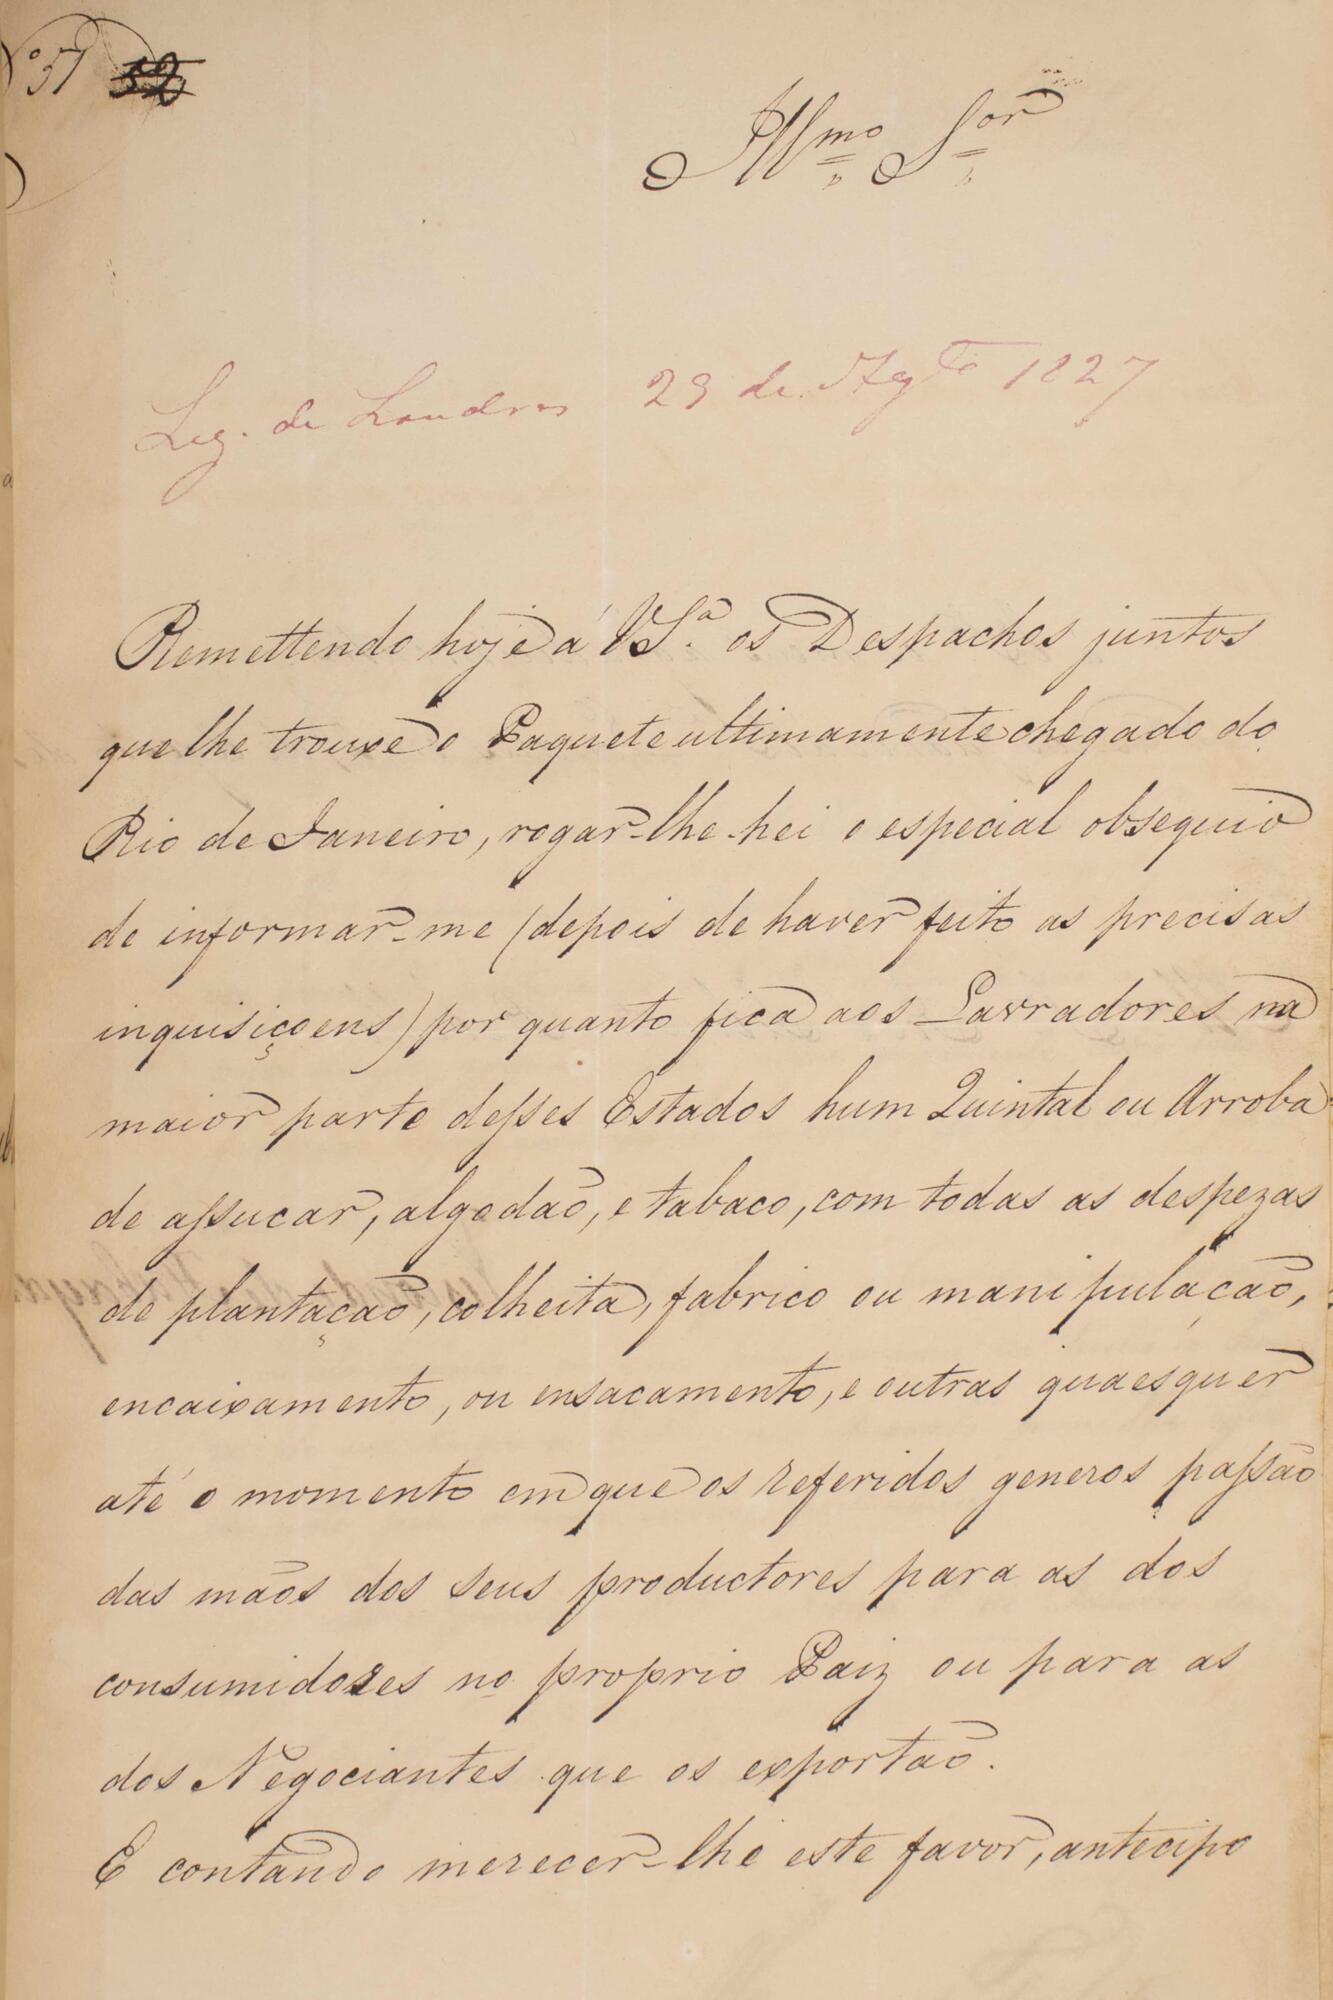 51 52
Illmo Sor
Leg. de Londres 29 de Agto 1827
Remettendo hoje á VSa. os Despachos juntos
que lhe trouxe o Paquete ultimamente chegado do
Rio de Janeiro, rogar-lhe-hei o especial obsequio
de informar-me (depois de haver feito as precisas
inquisiçoens) por quanto fica aos Lavradores na
maior parte desses Estados hum Quintal ou Arroba
de assucar, algodão, e tabaco, com todas as despezas
de plantação, colheita, fabrico ou manipulação,
encaixamento, ou ensacamento, e outras quaesquer
até o momento em que os referidos generos passão
das mãos dos seus productores para as dos
consumidores no proprio Paiz ou para as
dos Negociantes que os exportão.
E contando merecer-lhe este favor, antecipo